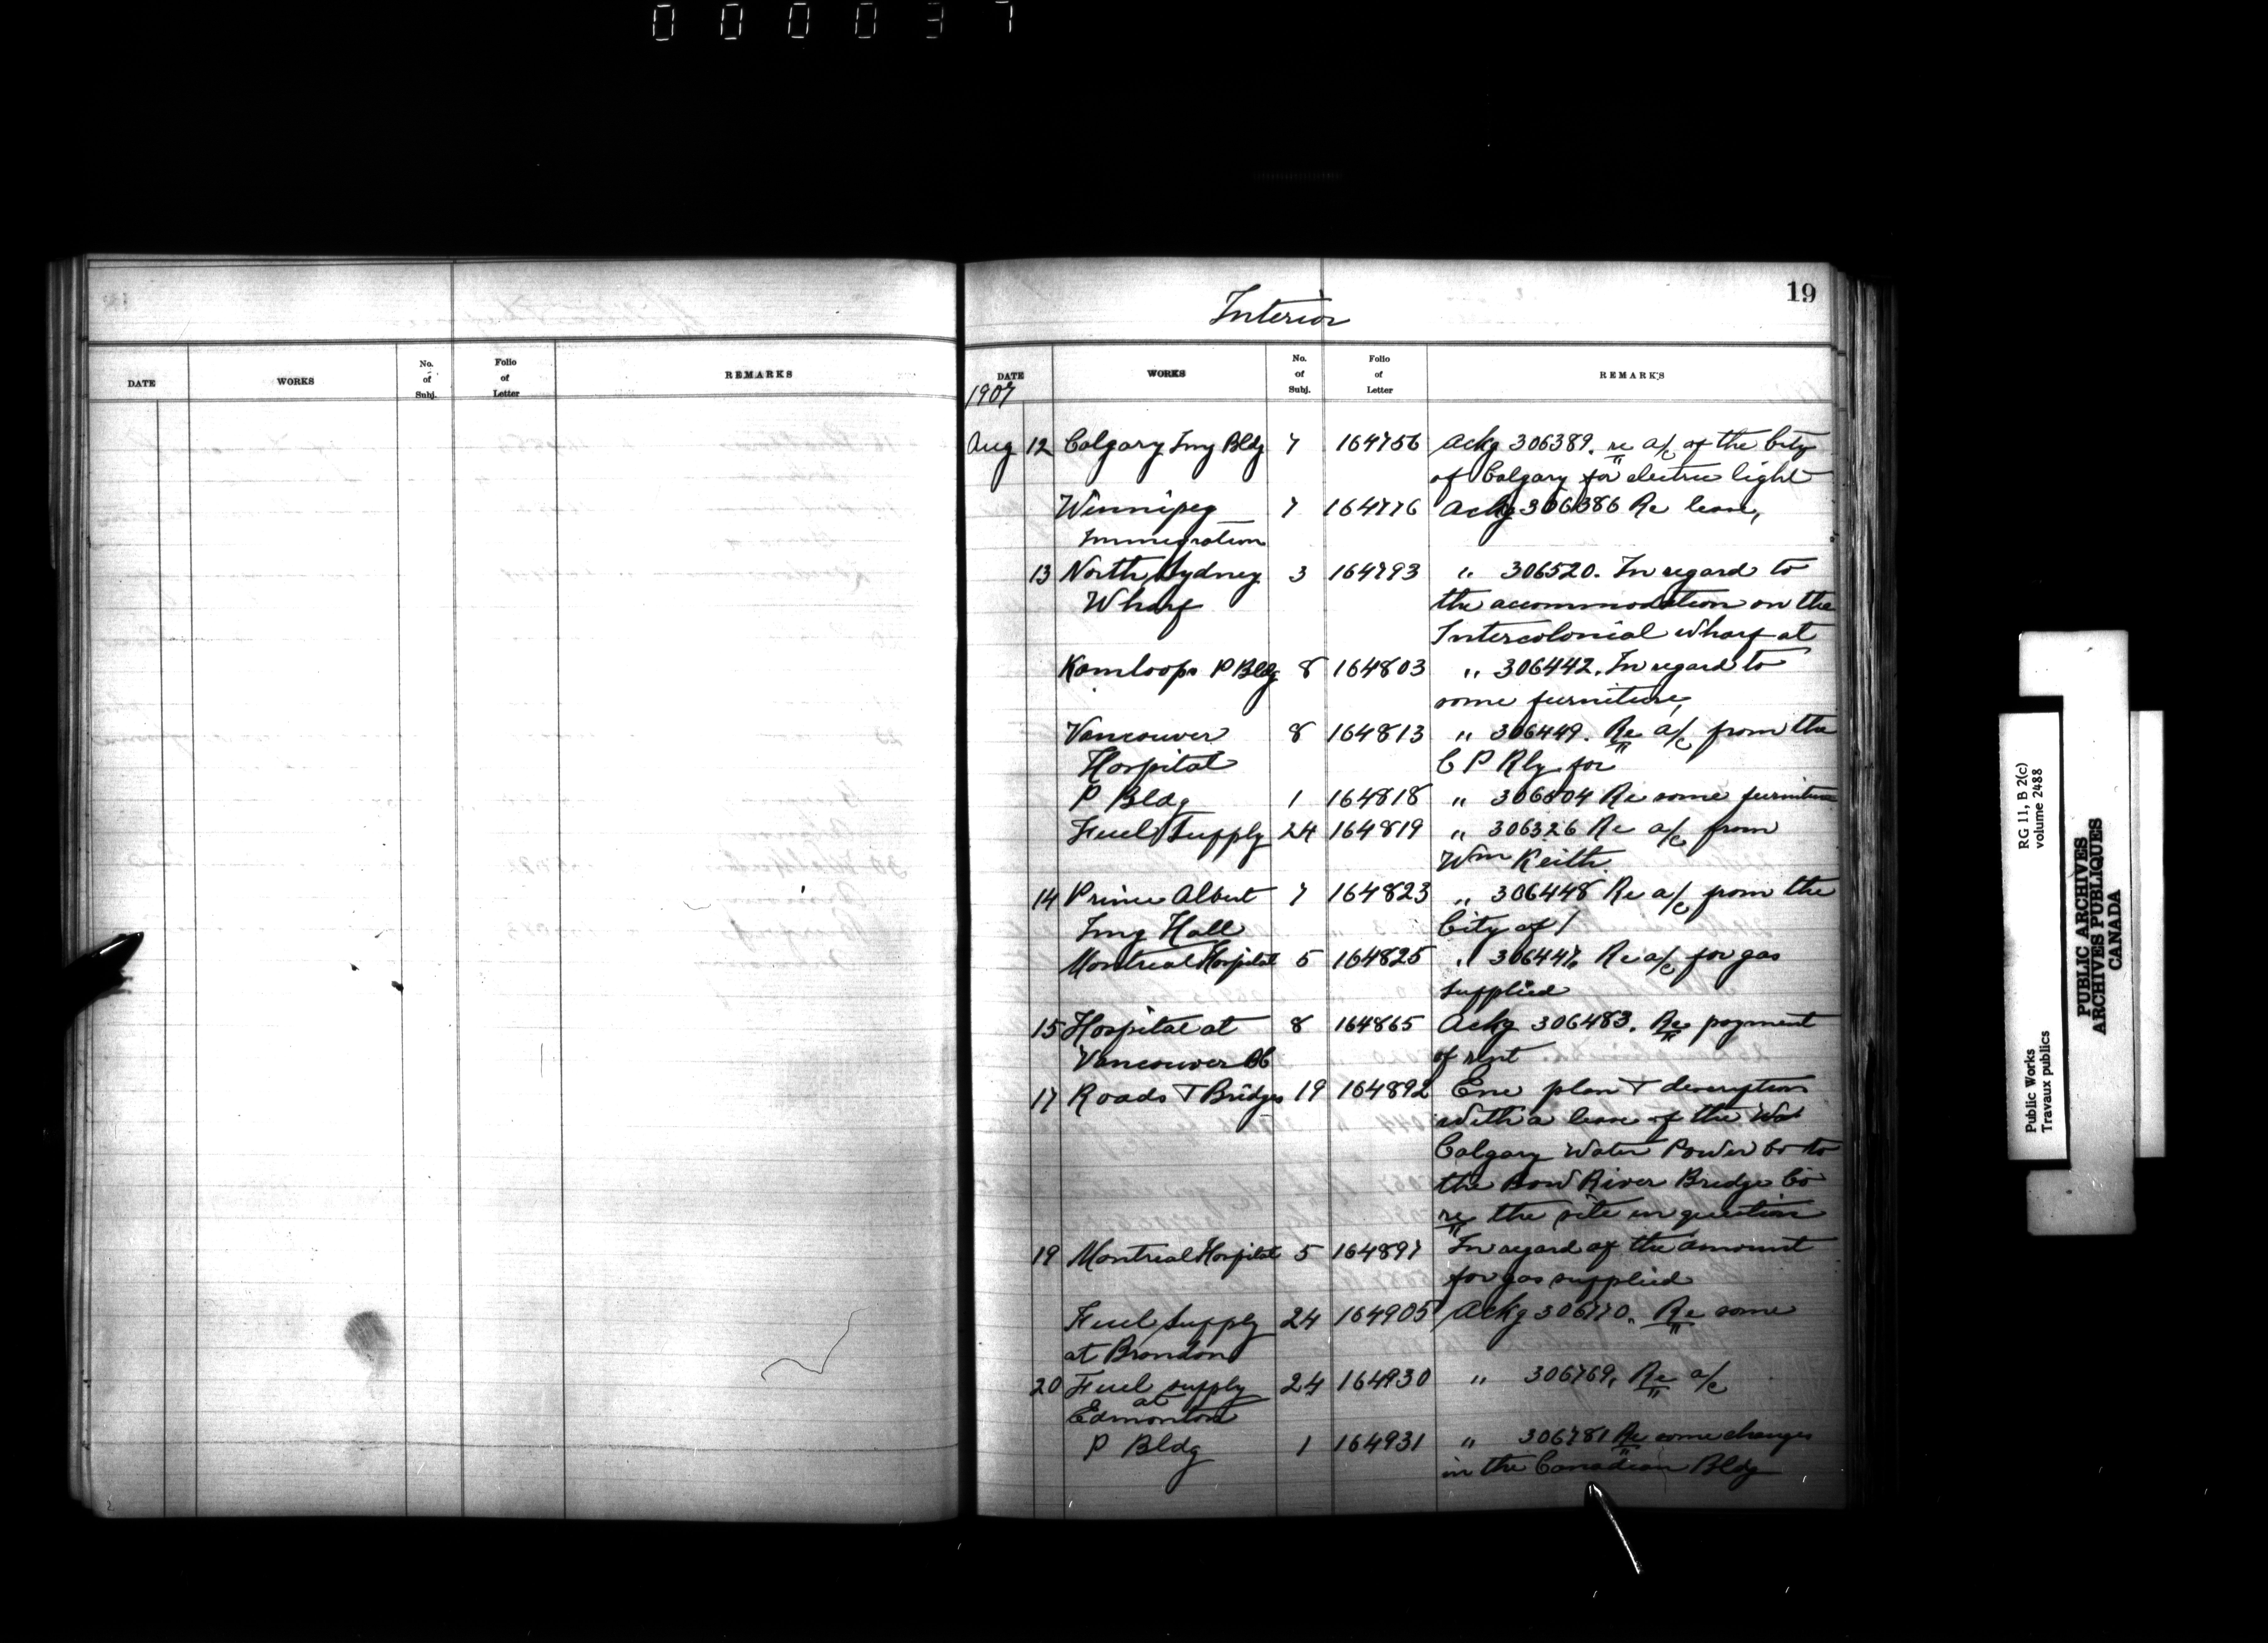 000037
DATE WORKS No. of Subj. Folio of Letter REMARKS
19
Interior
DATE WORKS No. of Subj. Folio of Letter REMARKS
1907
Aug 12 Calgary Img Bldg 7 164756 Ackg 306389. re a/c of the City
of Calgary for electric light
Winnipeg 7 164776 Ackg 306386 Re lease,
Immigration
13 North Sydney 3 164793 " 306520. In regard to
Wharf the accommodation on the
Intercolonial wharf at
Kamloops P Bldg 8 164803 " 306442. In regard to
some furniture,
Vancouver 8 164813 " 306449. Re a/c from the
Hospital C P Rly for
P Bldg 1 164818 " Re some furniture
Fuel Supply 24 164819 " 306326 Re a/c from
Wm Keith
14 Prince Albert 7 164823 " 306448 Re a/c from the
Img Hall City of /
Montreal Hospital 5 164825 " 306447. Re a/c for gas
supplied
15 Hospital at 8 164865 Ackg 306483. Re payment
Vancouver of rent
17 Roads & Bridges 19 164892 Enc plan & description
with a lease of the
Calgary Water Power Co to
the Bow River Bridge Co
re the site in question
19 Montreal Hospital 5 164897 In regard of the amount
for gas supplied
Fuel Supply 24 164905 Ackg 306770. Re some
at Brandon
20 Fuel supply 24 164930 " 306769. Re a/c
at
Edmonton
P Bldg 1 164931 " 306781 Re some changes
in the Canadian Bldg
RG 11, B 2(c)
volume 2488
Public Works
Travaux publics
PUBLIC ARCHIVES
ARCHIVES PUBLIQUES
CANADA